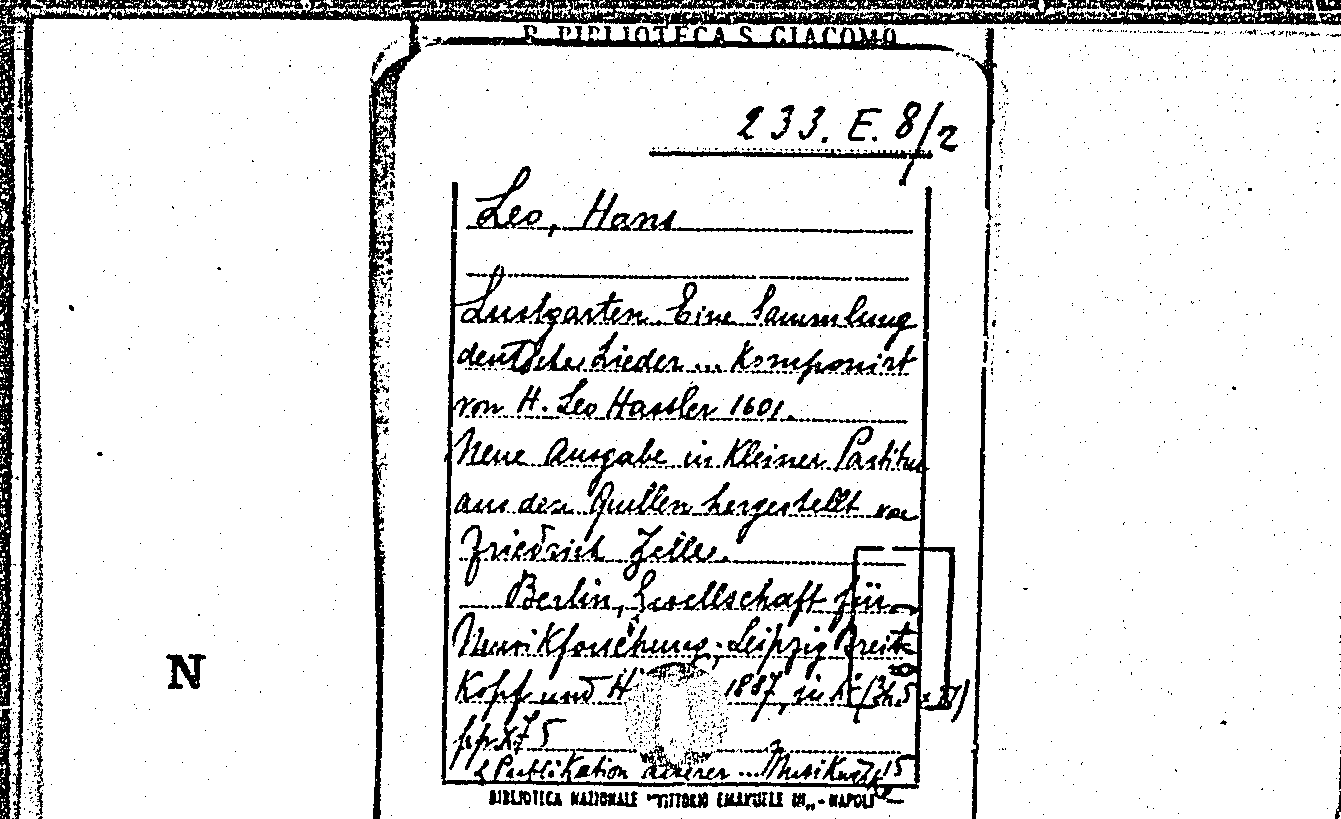 R. BIBLIOTECA S. GIACOMO
233. E. 8/2
Leo, Hans
Lustgarten. Eine Sammlung
deutscher Lieder ... Komponirt
von H. Leo Hassler 1601.
Neue Ausgabe in Kleiner Partitur
aus den Quellen hergestellt von
Friedrich Zelle.
Berlin, Gesellschaft für
Musikforschung; Leipzig Breit
Kopf und H 1887, in 4°
pp. X 75
Publikation älterer ... Musikwerke 15
N
BIBLIOTECA NAZIONALE "VITTORIO EMANUELE III" - NAPOLI